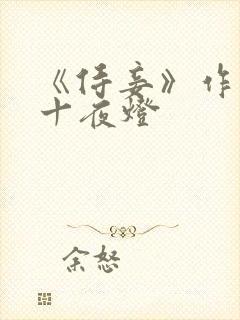 《侍妾》作
十夜燈
余怒